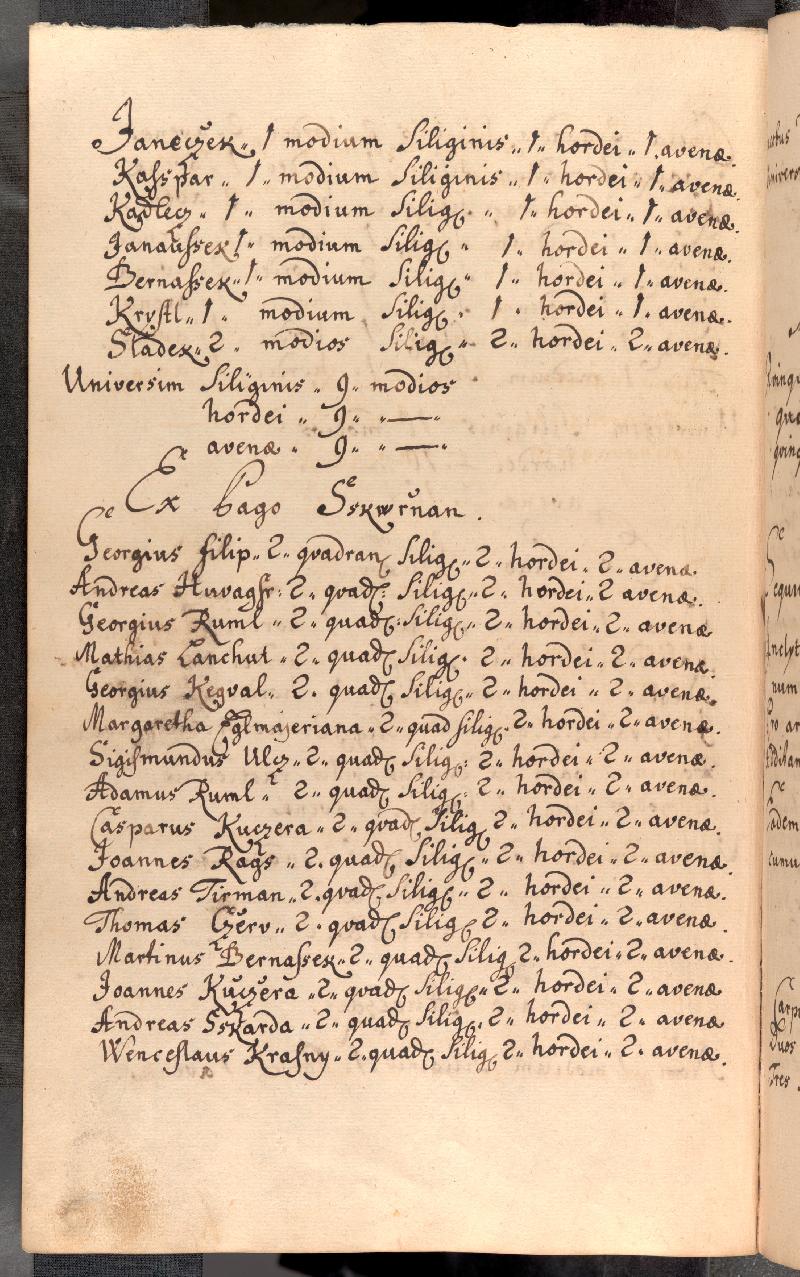 Janeczek „ 1 modium Siliginis „ 1 „ hordei „ 1 „ avenæ.
Kasspar „ 1 „ modium Siliginis „ 1 „ hordei „ 1 „ avenæ.
Kadlecz „ 1 „ modium Silig „ 1 „ hordei „ 1 „ avenæ.
Janaussek 1 „ modium Silig „ 1 „ hordei „ 1 „ avenæ.
Bernassek „ 1 „ modium Silig „ 1 „ hordei „ 1 „ avenæ.
Krystl „ 1 „ modium Silig „ 1 „ hordei „ 1 „ avenæ.
Sladek „ 2 „ modios Silig „ 2 „ hordei „ 2 „ avenæ.
Universim Siliginis „ 9 „ modios
hordei „ 9 „ „ — „
avenæ „ 9 „ „ — „
Ex Pago Sskwrňan.
Georgius Filip „ 2 „ qvadran Silig „ 2 „ hordei „ 2 „ avenæ.
Andreas : 2 „ qvad: Silig „ 2 „ hordei „ 2 avenæ.
Georgius Ruml „ 2 „ quad: Silig „ 2 „ hordei „ 2 „ avenæ
Mathias Lanchut „ 2 „ quad Silig „ 2 „ hordei „ 2 „ avenæ.
Georgius Kegval „ 2 „ quad Silig „ 2 „ hordei „ 2 „ avenæ.
Margaretha „ 2 „ quad silig „ 2 „ hordei „ 2 „ avenæ.
Sigismundus Ulcz „ 2 „ quad Silig : 2 „ hordei „ 2 „ avenæ.
Adamus Ruml „ 2 „ quad Silig : 2 „ hordei „ 2 „ avenæ.
Casparus Kuczera „ 2 „ qvad Silig 2 „ hordei „ 2 „ avenæ.
Joannes Rags „ 2 . quad Silig „ 2 „ hordei „ 2 „ avenæ.
Andreas Tirman „ 2 . qvad Silig „ 2 „ hordei „ 2 „ avenæ.
Thomas Czerv „ 2 . qvad Silig 2 „ hordei „ 2 „ avenæ.
Martinus Bernassek „ 2 „ quad Silig 2 „ hordei „ 2 „ avenæ.
Joannes Kuczera „ 2 „ qvad Silig „ 2 „ hordei „ 2 „ avenæ
Andreas Sskarda „ 2 „ quad Silig . 2 „ hordei „ 2 „ avenæ
Wenceslaus Krasny „ 2 . quad Silig 2 „ hordei „ 2 . avenæ.